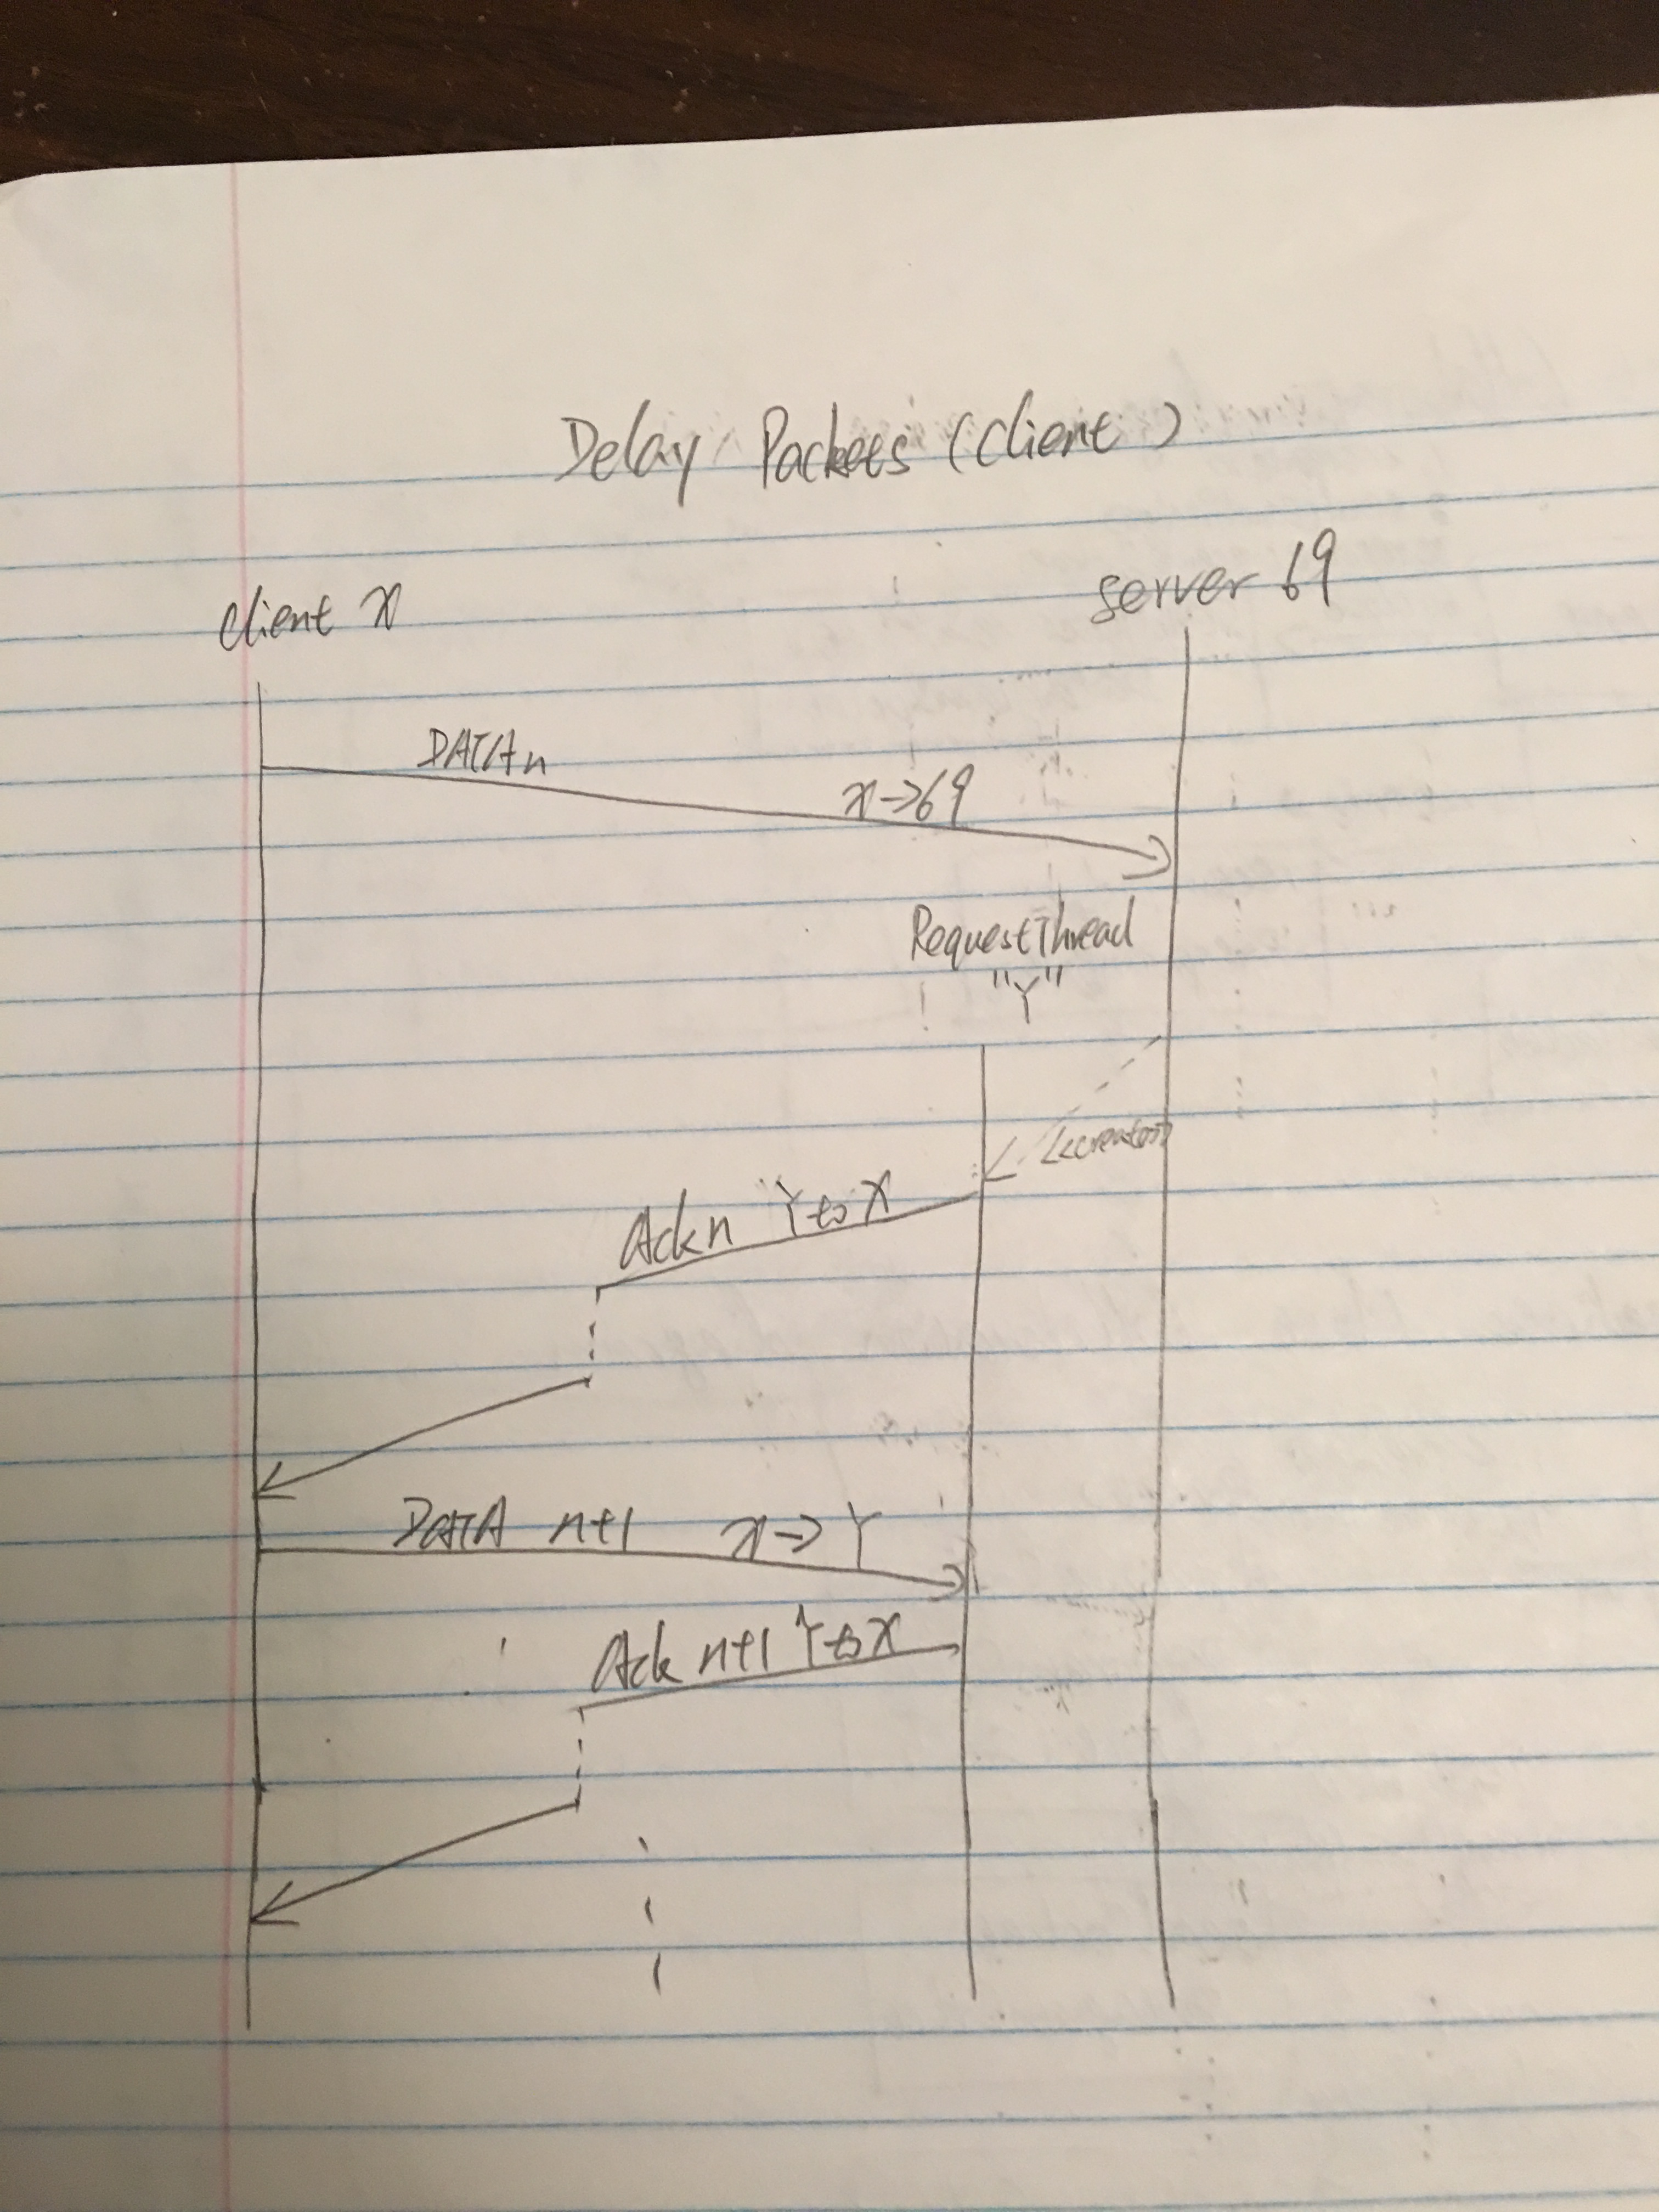 Delay Packets (Client)
client X
server 69
DATA n
X→69
RequestThread
"Y"
<<create>>
Ack n Y to X
DATA n+1 X→Y
Ack n+1 Y to X